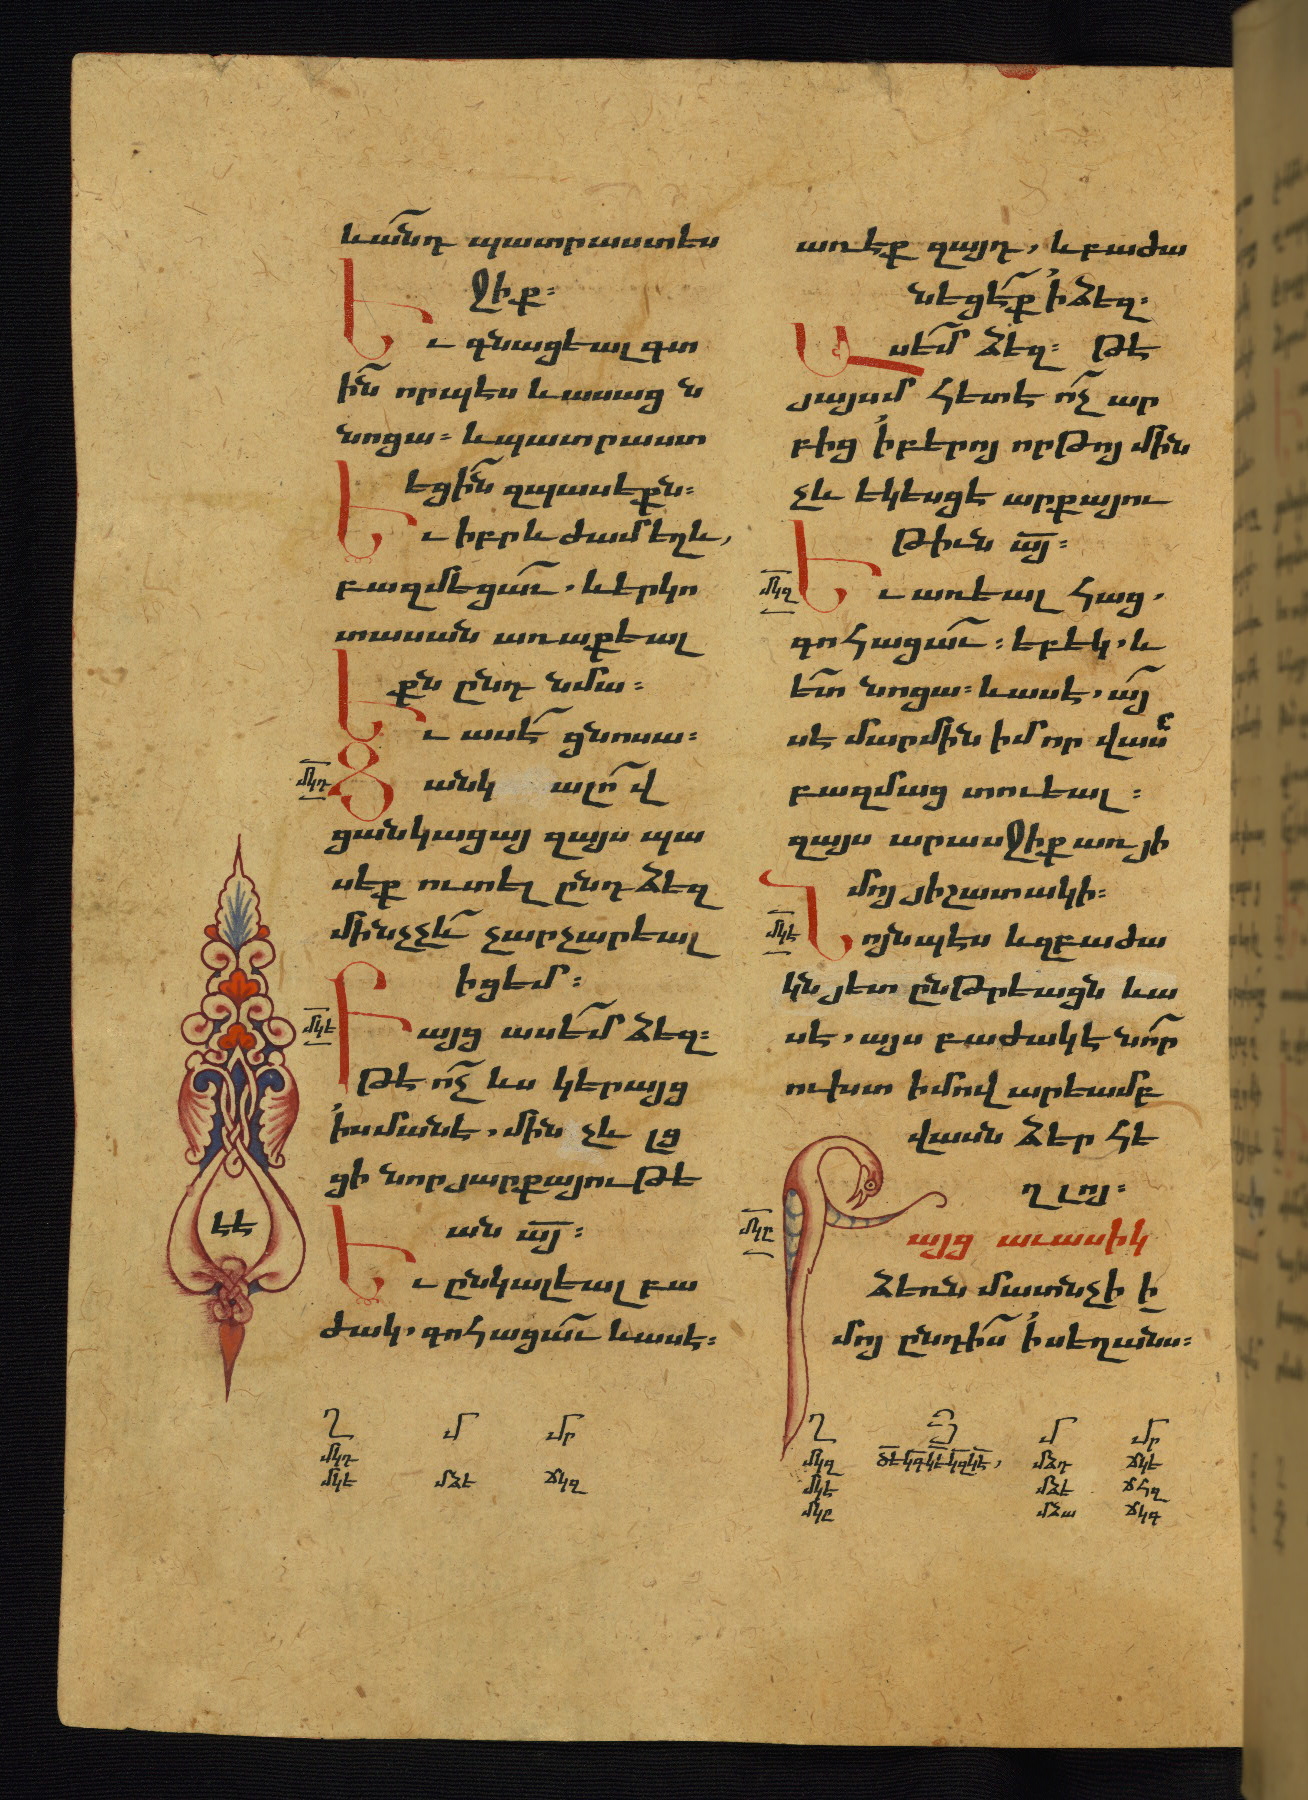 և անդ պատրաստես
ջիք։
Եւ գնացեալ գտ
ին որպէս և ասաց ն
նոցա։ և պատրաստ
եցին զպասեքն։
Եւ իբրև ժամ եղև,
բազմեցաւ. և երկո
տասան առաքեալ
քն ընդ նմա։
Եւ ասէ ցնոսա։
մկդ
Ցանկ ալով
ցանկացայ զայս պա
սեք ուտել ընդ ձեզ
մինչչև չարչարեալ
իցեմ։
մկե
Բայց ասեմ ձեզ։
Թէ ոչ ևս կերայց
ի սմանէ. մինչև լց
ցի նոր յարքայութե
ան այ։
Եւ ընկալեալ բա
ժակ. գոհացաւ և ասէ։
ԷԷ
առէք զայդ, և բաժա
նեցէք ի ձեզ։
Ասեմ ձեզ։ Թէ
յայսմ հետէ ոչ ար
բից ի բերոյ որթոյ մին
չև եկեսցէ արքայու
թիւն այ։
մկզ
Եւ առեալ հաց.
գոհացաւ։ եբեկ. և
ետ նոցա։ և ասէ. այ
սէ մարմին իմ որ վասն
բազմաց տուեալ։
զայս արասջիք առ յի
մոյ յիշատակի։
մկէ
Նոյնպէս և զբաժա
կն յետ ընթրեացն և ա
սէ. այս բաժակ է նոր
ուխտ իմով արեամբ
վասն ձեր հե
ղլոյ։
մկը
Բայց աւասիկ
ձեռն մատնչի ի
մոյ ընդիս ի սեղանս։
Ղ Մ Մր
մկդ
մկե մձե ճկզ
Ղ Մ Մր
մկզ մձդ ճկե
մկէ մձե ճհզ
մկը մձա ճկգ